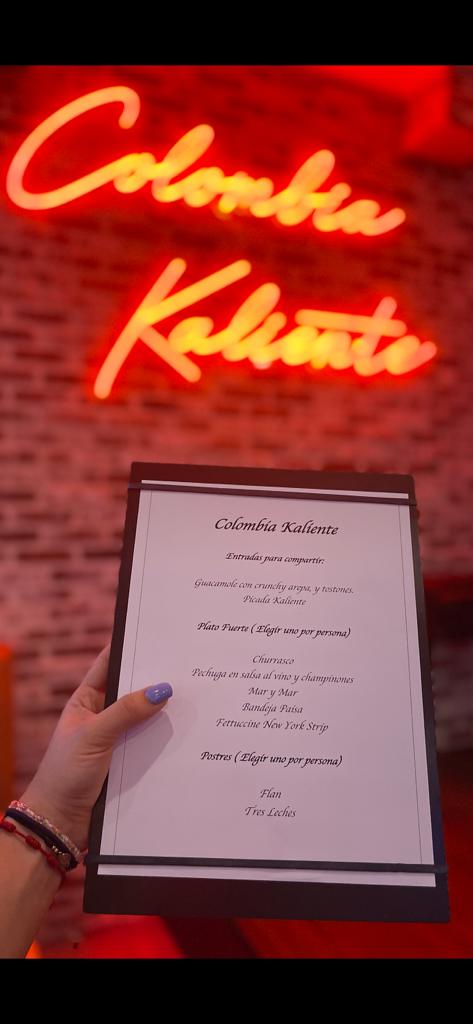 Colombia
Kaliente
Colombia Kaliente
Entradas para compartir:
Guacamole con crunchy arepa, y tostones.
Picada Kaliente
Plato Fuerte ( Elegir uno por persona)
Churrasco
Pechuga en salsa al vino y champinones
Mar y Mar
Bandeja Paisa
Fettuccine New York Strip
Postres ( Elegir uno por persona)
Flan
Tres Leches